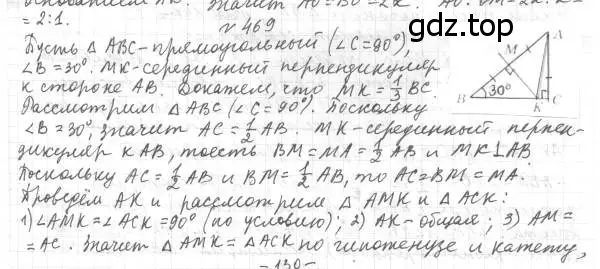 основанием AK. Значит AO=BO=2K.
= 2:1.
№ 469
gdz.top
Пусть △ ABC-прямоугольный (∠C=90°),
∠B = 30°. MK-серединный перпендикуляр
к стороне AB. Докажем, что MK = 1/3 BC.
Рассмотрим △ ABC (∠C = 90°). Поскольку
∠B = 30°, значит AC = 1/2 AB. MK-серединный перпен-
дикуляр к AB, тоесть BM = MA = 1/2 AB и MK⊥AB.
Поскольку AC = 1/2 AB и BM = 1/2 AB, то AC=BM = MA.
Проведём AK и рассмотрим △ AMK и △ ACK:
1) ∠AMK = ∠ACK = 90° (по условию); 2) AK-общая; 3) AM =
= AC. Значит △ AMK = △ ACK по гипотенузе и катету,
- 130 -
A
M
B 30° K C